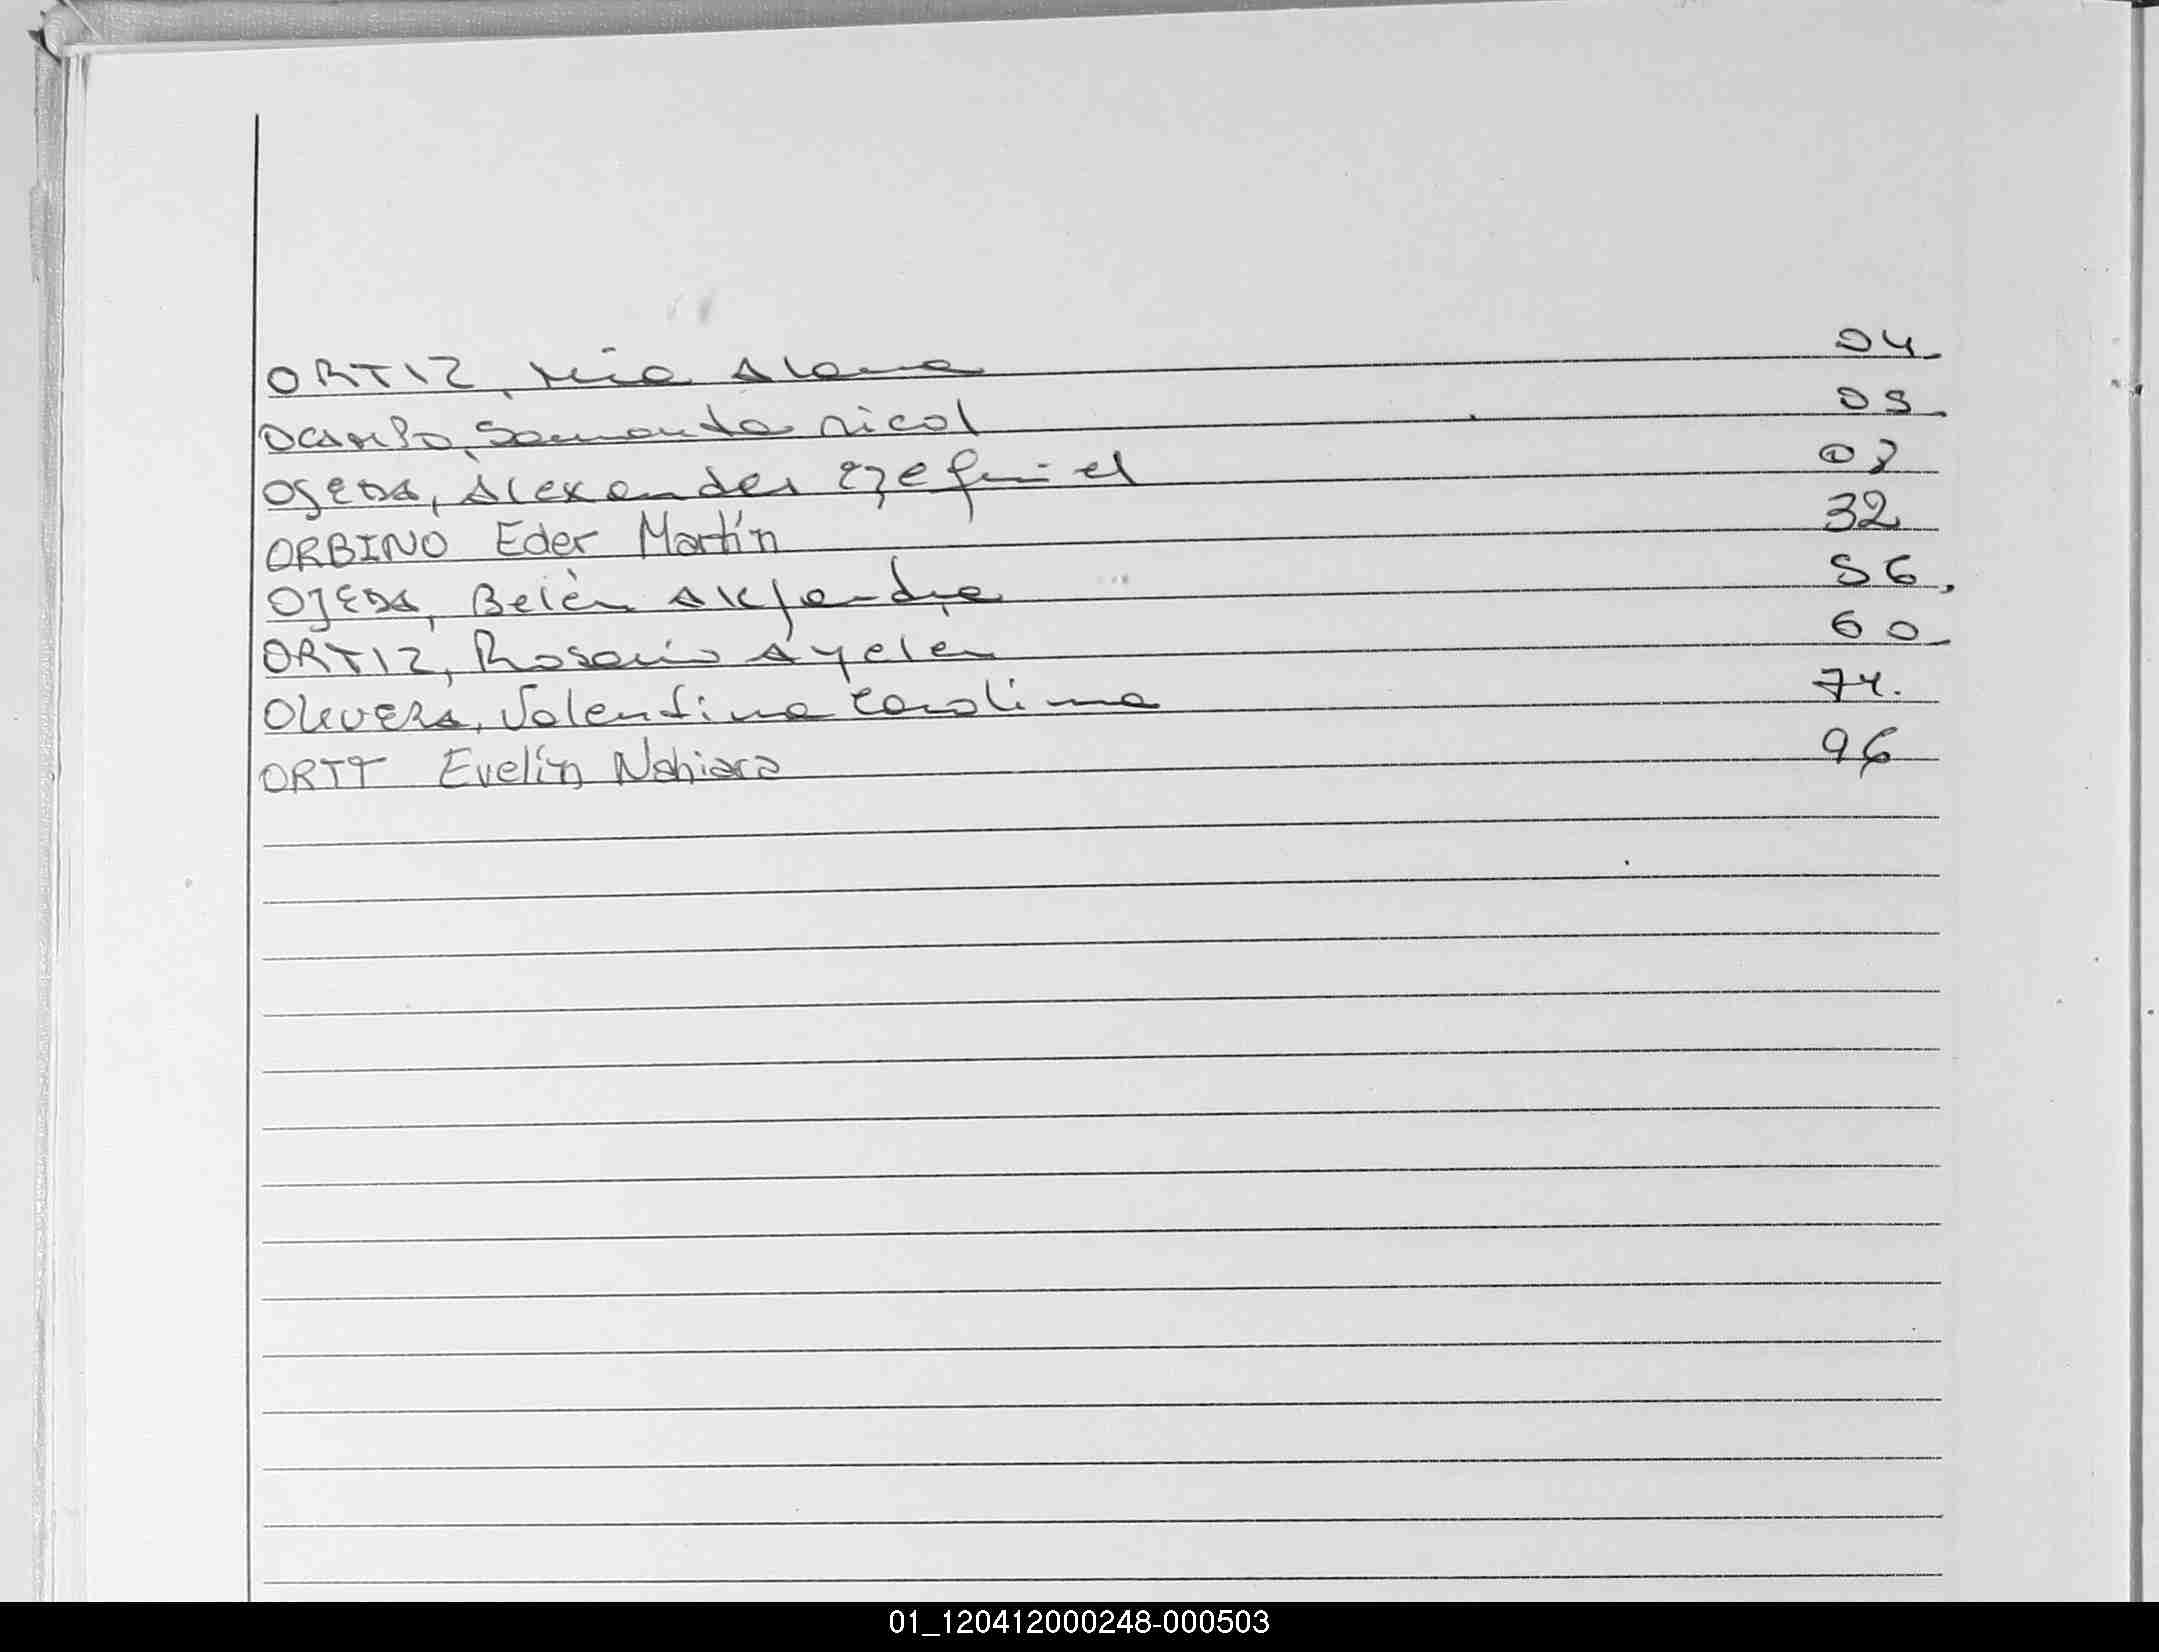 ORTIZ, Mía Alana 04
OCAMPO, Samanta Nicol 05
OJEDA, Alexander Ezequiel 07
ORBINO Eder Martín 32
OJEDA, Belén Alejandra 56
ORTIZ, Rosario Ayelen 60
OLIVERA, Valentina Carolina 74
ORTT Evelín Nahiara 96
01_120412000248-000503